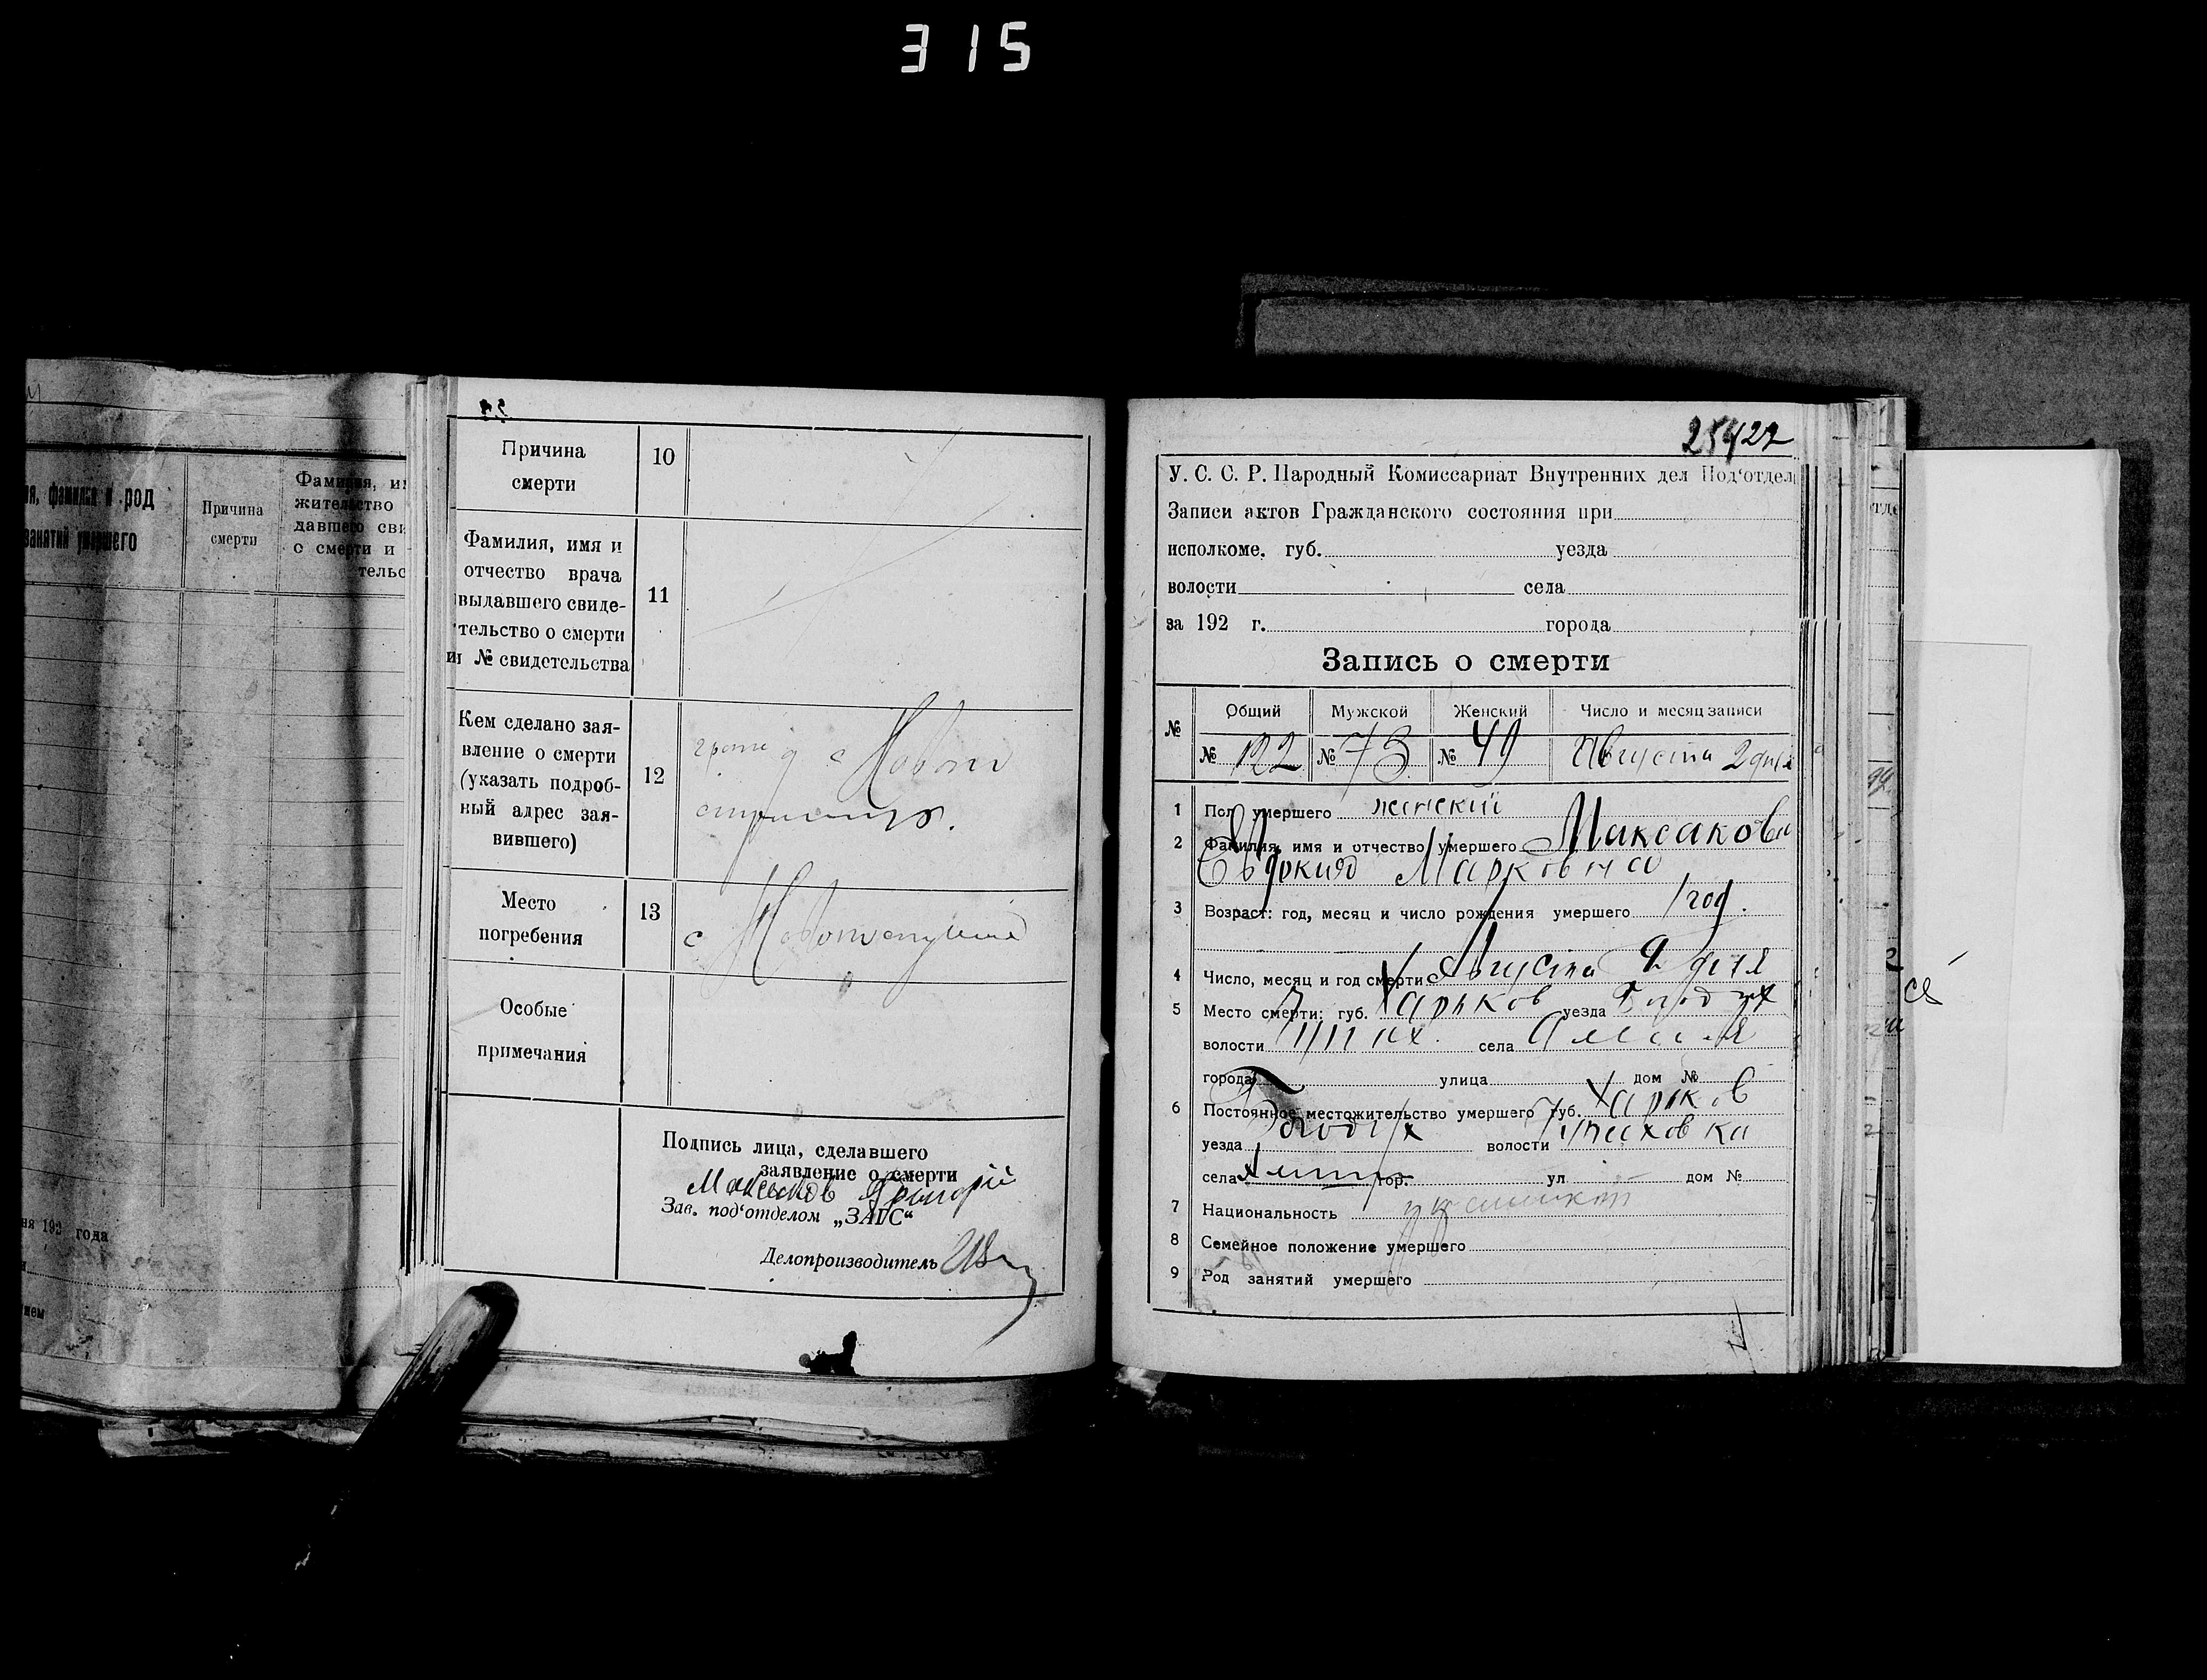 315
я, фамилия и род
занятий умершего
Причина
смерти
Фамилия, и
жительство
давшего сви
о смерти и
тельс
ня 192 года
Причина
смерти
10
Фамилия, имя и
отчество врача
выдавшего свиде-
тельство о смерти
и № свидетельства
11
Кем сделано зая-
вление о смерти
(указать подроб-
ный адрес зая-
вившего)
12
Место
погребения
13
с
Особые
примечания
Подпись лица, сделавшего
заявление о смерти
Максаков Григорій
Зав. под'отделом „ЗАГС“
Делопроизводитель
У. С. С. Р. Народный Комиссариат Внутренних дел Под'отдел
Записи актов Гражданского состояния при
исполкоме. губ. уезда
волости села
за 192 г. города
Запись о смерти
№ Общий Мужской Женский Число и месяц записи
№ 122 № 73 № 49 Августа 2 дня
1 Пол умершего женский
2 Фамилия, имя и отчество умершего Максакова
Евдокия Марковна
3 Возраст: год, месяц и число рождения умершего 1 год.
4 Число, месяц и год смерти Августа дня
5 Место смерти: губ. Харьков уезда
волости села
города улица дом №
6 Постоянное местожительство умершего губ. Харьков
уезда волости
села гор. ул дом №
7 Национальность
8 Семейное положение умершего
9 Род занятий умершего